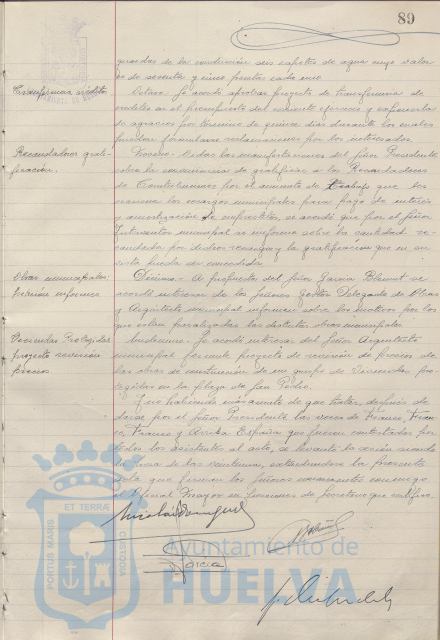 89
guardas de la conducción seis capotes de agua cuyo valor
es de sesenta y cinco pesetas cada uno
Transferencia créditos
Octavo.- Se acordó aprobar proyecto de transferencia de
créditos en el presupuesto del corriente ejercicio y exponerlo
al público por término de quince días durante los cuales
puedan formularse reclamaciones por los interesados.
Recaudadores grati-
ficación.
Noveno.- Vistas las manifestaciones del señor Presidente
sobre la conveniencia de gratificar a los Recaudadores
de Contribuciones por el aumento de trabajo que les
ocasiona los recargos municipales para pago de interés
y amortización de empréstitos, se acordó que por el señor
Interventor municipal se informe sobre la cantidad re-
caudada por dichos recargos y la gratificación que en su
vista pueda ser concedida.
Obras municipales:
Décimo.- A propuesta del Señor García se
acordó interesar de los señores Gestor Delegado de Obras
y Arquitecto municipal informen sobre los motivos por los
que están paralizadas las distintas obras municipales.
Viviendas Protegidas
proyecto revisión
precios
Undécimo.- Se acordó interesar del Señor Arquitecto
municipal formule proyecto de revisión de precios de
las obras de construcción de un grupo de Viviendas pro-
tegidas en la plaza de San Pedro.
Y no habiendo más asuntos de que tratar, después de
darse por el Señor Presidente las voces de Franco, Fran-
co, Franco y Arriba España que fueron contestadas por
todos los asistentes al acto, se levantó la sesión siendo
la hora de las veintiuna, extendiéndose la presente
acta que firman los señores concurrentes conmigo
el Oficial Mayor en funciones de Secretario que certifico.
Nicolás Domínguez
García
PORTUS MARIS
ET TERRÆ
CUSTODIA
Ayuntamiento de
HUELVA